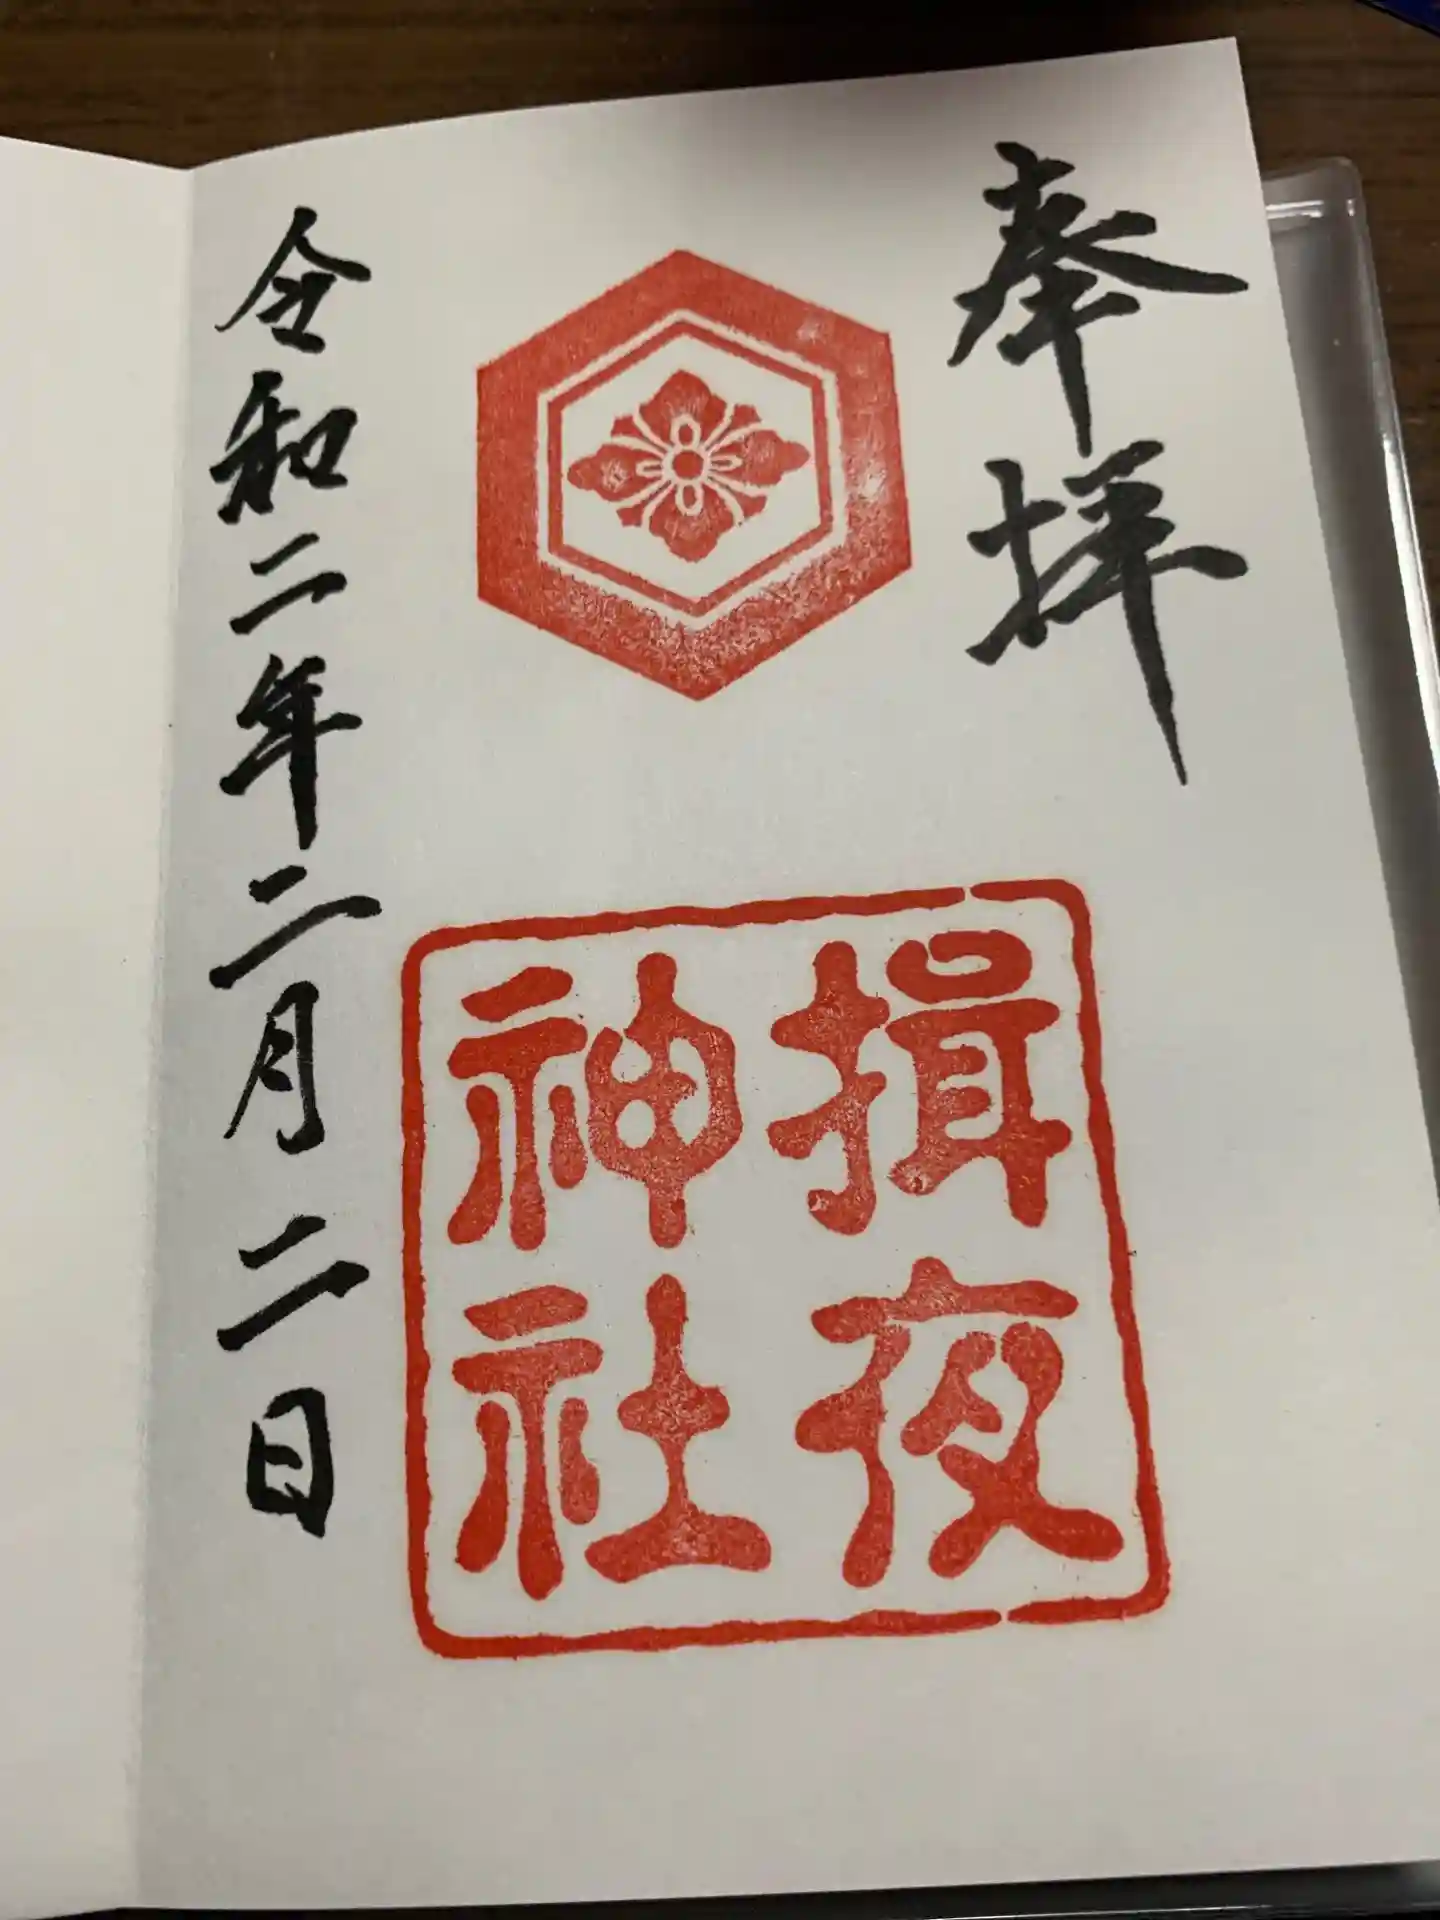 奉拝
揖夜
神社
令和二年二月二日